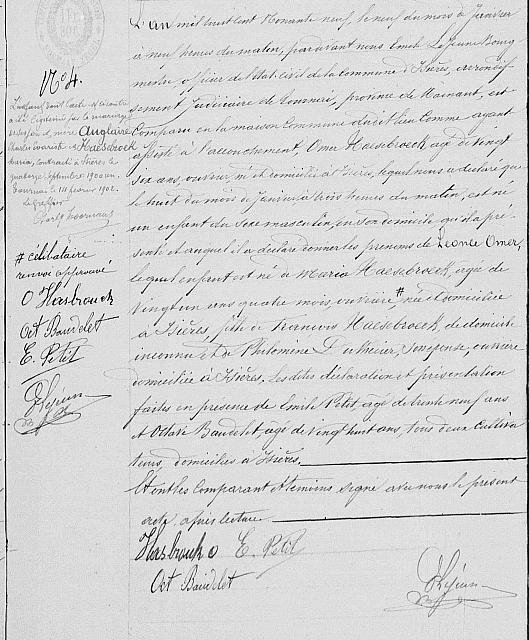 N° 4.
L'enfant dont l'acte ci-contre
a été légitimé par le mariage
de ses père et mère Anglaire
Charles Evariste et Haesebroeck
Maria, contracté à Isières le
quatorze septembre 1900 un.
Tournai le 14 février 1902.
Le Greffier
# célibataire
renvoi approuvé
O Hasbrouck
Oct Baudelet
E. Petit
DLejeune
L'an mil huit cent nonante neuf, le neuf du mois de Janvier
à neuf heures du matin, par devant nous Emile Lejeune Bourg-
mestre, officier de l'état civil de la commune d'Isières, arrondis-
sement judiciaire de Tournai, province de Hainaut, est
comparu en la maison commune dudit lieu comme ayant
assisté à l'accouchement, Omer Haesebroeck, âgé de vingt
six ans, ouvrier, né et domicilié à Isières, lequel nous a déclaré que
le huit du mois de Janvier à trois heures du matin, est né
un enfant du sexe masculin, en son domicile qu'il a pré-
senté et auquel il a déclaré donner les prénoms de Léonce Omer,
lequel enfant est né à Maria Haesebroeck, âgée de
vingt un ans quatre mois, ouvrière #, née et domiciliée
à Isières, fille de François Haesebroeck, de domicile
inconnu et de Philomène, son épouse, ouvrière
domiciliée à Isières. Les dites déclaration et présentation
faites en présence de Emile Petit, âgé de trente neuf ans
et Octave Baudelet, âgé de vingt huit ans, tous deux cultiva-
teurs, domiciliés à Isières.
Et ont les comparant et témoins signé avec nous le présent
acte, après lecture
Hasbrouck O E. Petit
Oct Baudelet
DLejeune